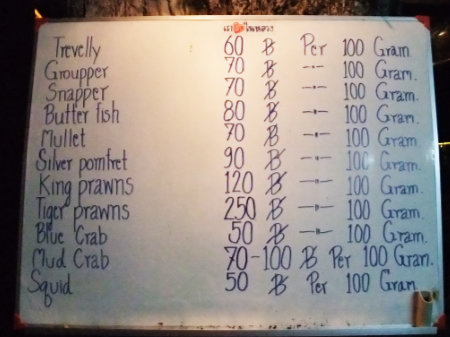 Trevelly 60 ฿ Per 100 Gram
Groupper 70 ฿ -〃- 100 Gram.
Snapper 70 ฿ -〃- 100 Gram.
Butter fish 80 ฿ -〃- 100 Gram.
Mullet 70 ฿ -〃- 100 Gram.
Silver pomfret 90 ฿ -〃- 100 Gram.
King prawns 120 ฿ -〃- 100 Gram.
Tiger prawns 250 ฿ -〃- 100 Gram.
Blue Crab 50 ฿ -〃- 100 Gram.
Mud Crab 70-100 ฿ Per 100 Gram.
Squid 50 ฿ Per 100 Gram